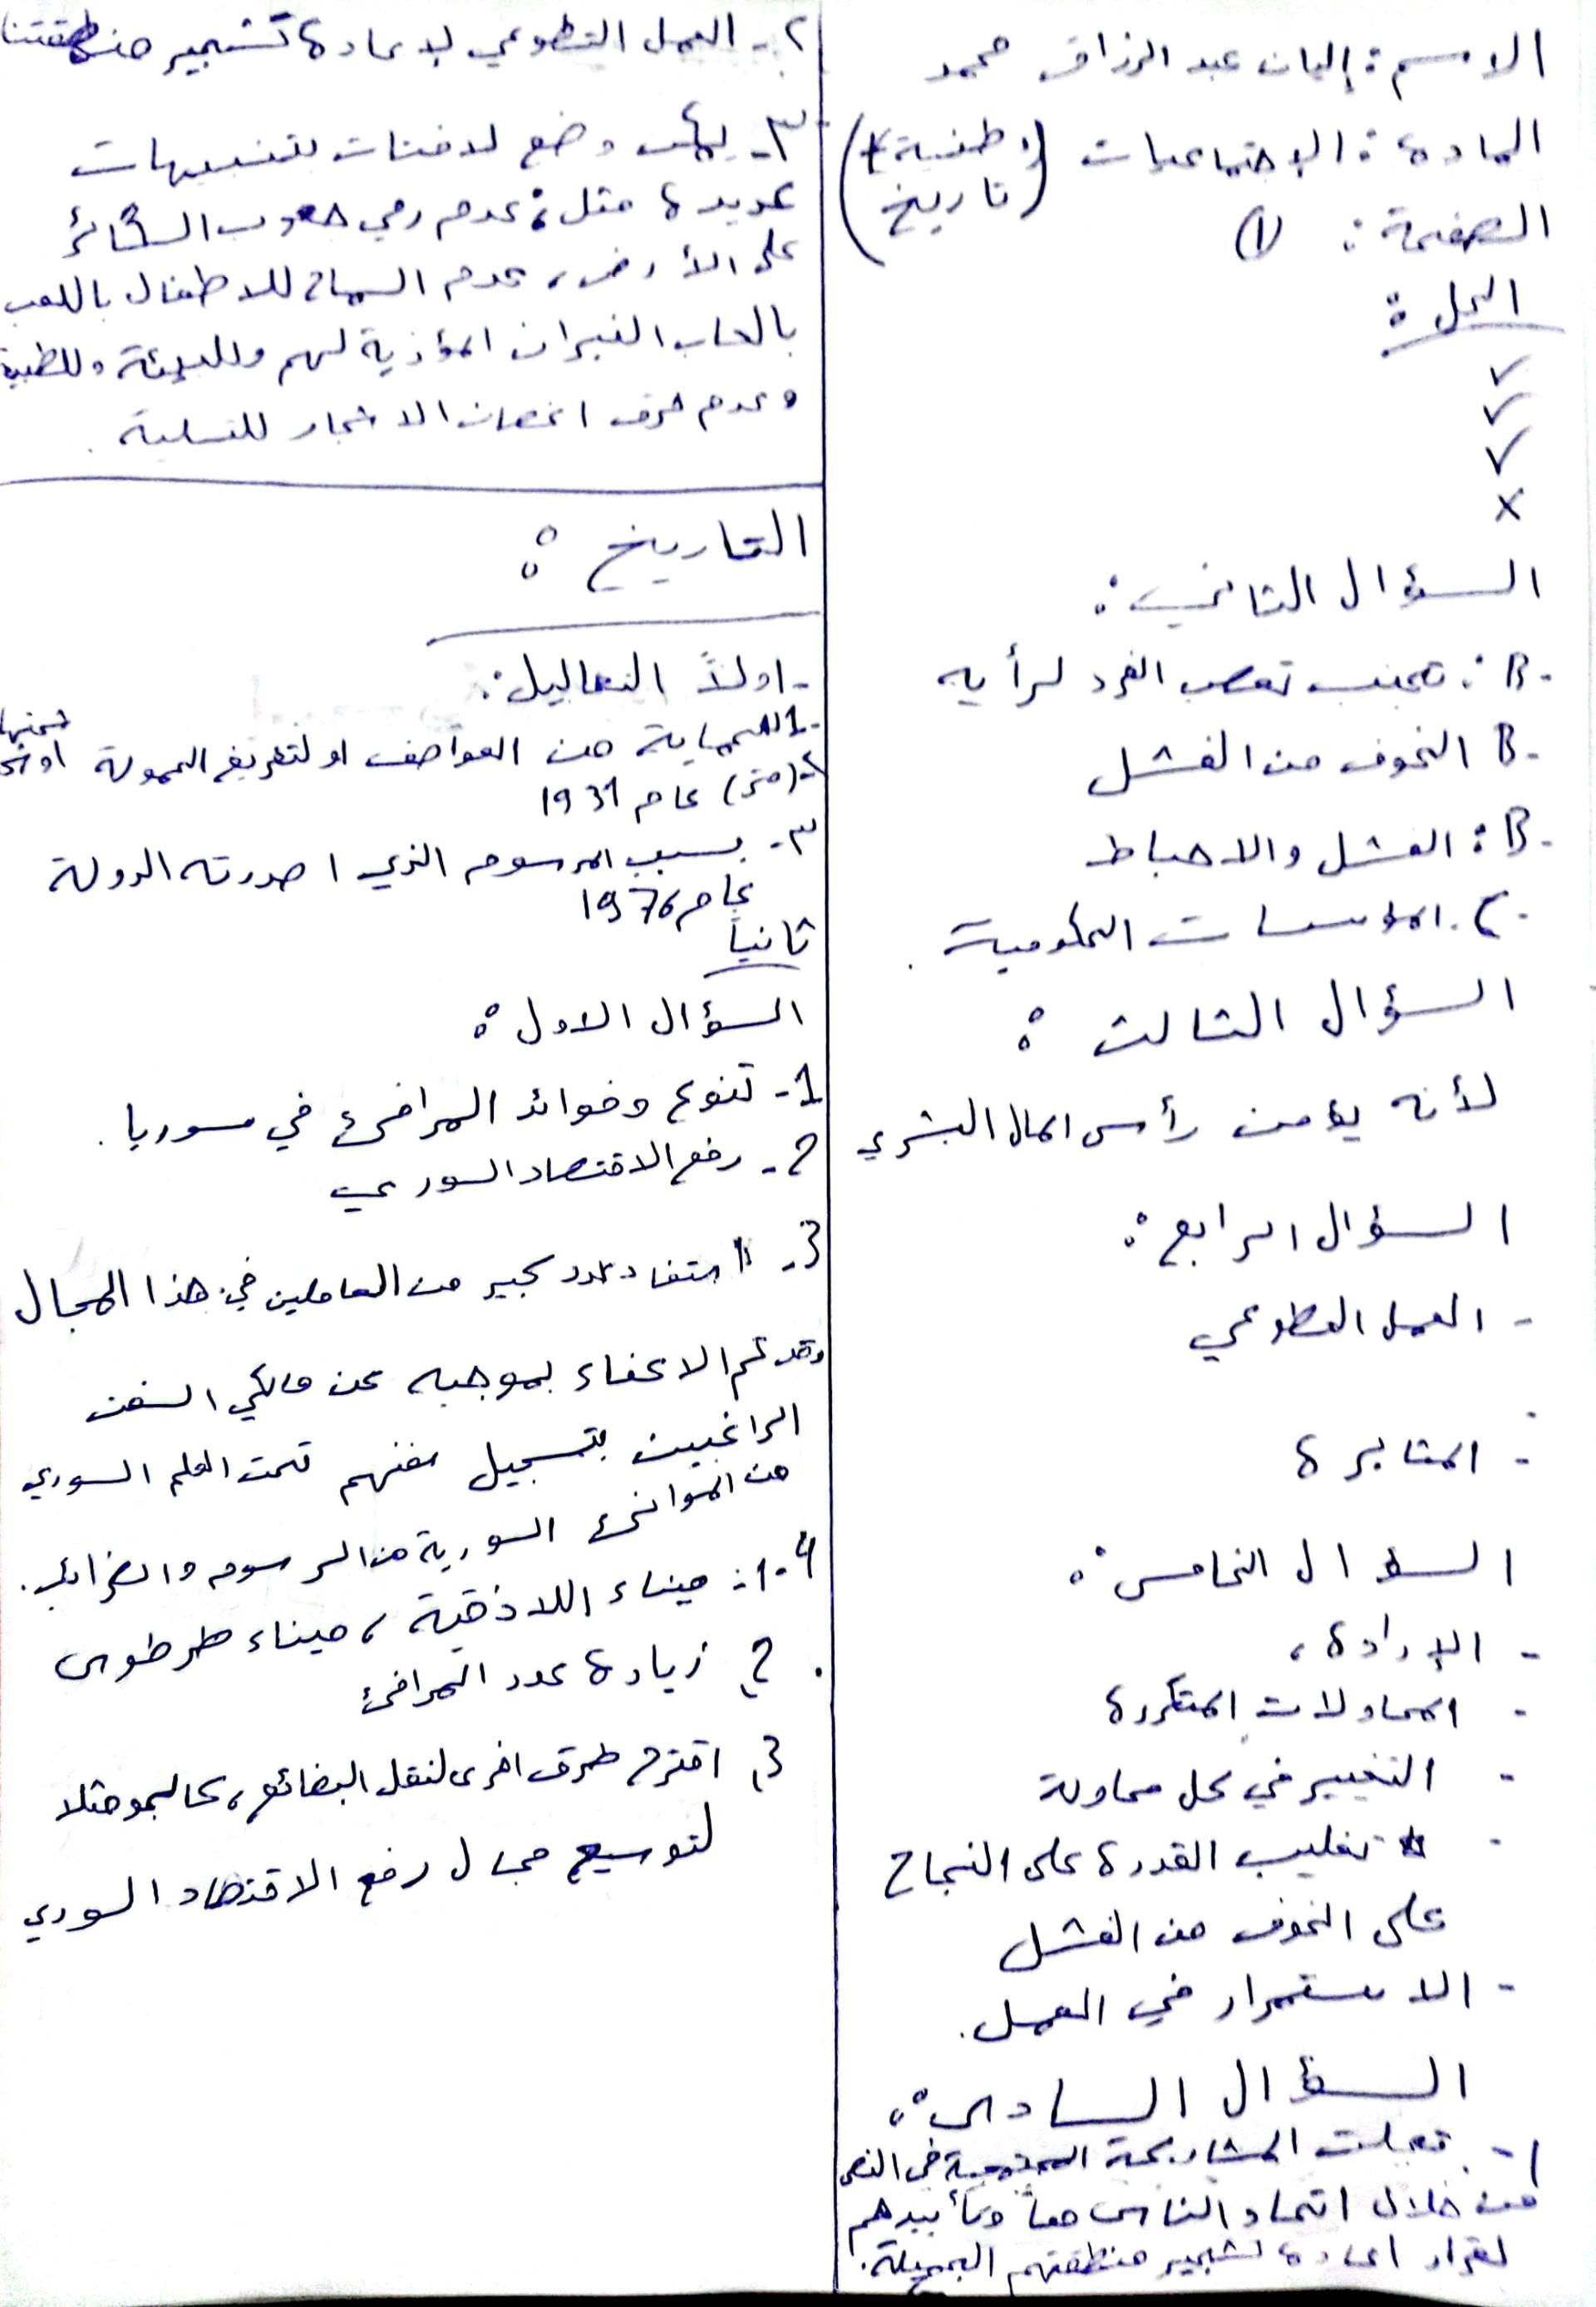 الاسم : إليان عبد الرزاق محمد
المادة : الاجتماعيات (وطنية + تاريخ)
الصفحة : (1)
الحل :
✓
✓
✓
×
السؤال الثاني :
- B : تجنب تعصب الفرد لرأيه
- B الخوف من الفشل
- B : الفشل والاحباط
- C . المؤسسات الحكومية .
السؤال الثالث :
لأنه يؤمن رأس المال البشري
السؤال الرابع :
- العمل التطوعي
- المثابرة
السؤال الخامس :
- الإرادة ،
- المحاولات المتكررة
- التغيير في كل محاولة
- تغليب القدرة على النجاح
على الخوف من الفشل
- الاستمرار في العمل .
السؤال السادس :
1 - تجلت المشاركة المجتمعية في النص
من خلال اتحاد الناس معاً وتأييدهم
لقرار اعادة تشجير منطقتهم الجميلة .
٢ - العمل التطوعي لإعادة تشجير منطقتنا
٣ - يجب وضع لافتات بتنبيهات
عديدة مثل : عدم رمي السجائر
على الأرض ، عدم السماح للاطفال باللعب
بالعاب النيران المؤذية لهم وللبيئة وللطبيعة
وعدم حرق اغصان الاشجار للتسلية .
التاريخ :
- اولاً التعاليل :
1 - للحماية من العواصف او لتفريغ الحمولة او شحنها
٢ - (متى) عام 1931
٣ - بسبب المرسوم الذي اصدرته الدولة
عام 1976
ثانياً
السؤال الاول :
1 - تنوع وفوائد المرافئ في سوريا .
2 - رفع الاقتصاد السوري
3 - استفاد عدد كبير من العاملين في هذا المجال
وقد تم الاعفاء بموجبه عن مالكي السفن
الراغبين بتسجيل سفنهم تحت العلم السوري
من الموانئ السورية من الرسوم والضرائب .
4 - 1 : ميناء اللاذقية ، ميناء طرطوس
2 , زيادة عدد المرافئ
3 , اقترح طرق اخرى لنقل البضائع ، كالجو مثلا
لتوسيع مجال رفع الاقتصاد السوري